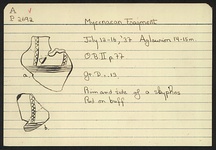 A 1
P 2692
Mycenaean Fragment
July 12-16, '37 Aglaurion 14-15m.
O.B. II p. 77
Gr. D : 13
Rim and side of a skyphos
Red on buff
a.
b.